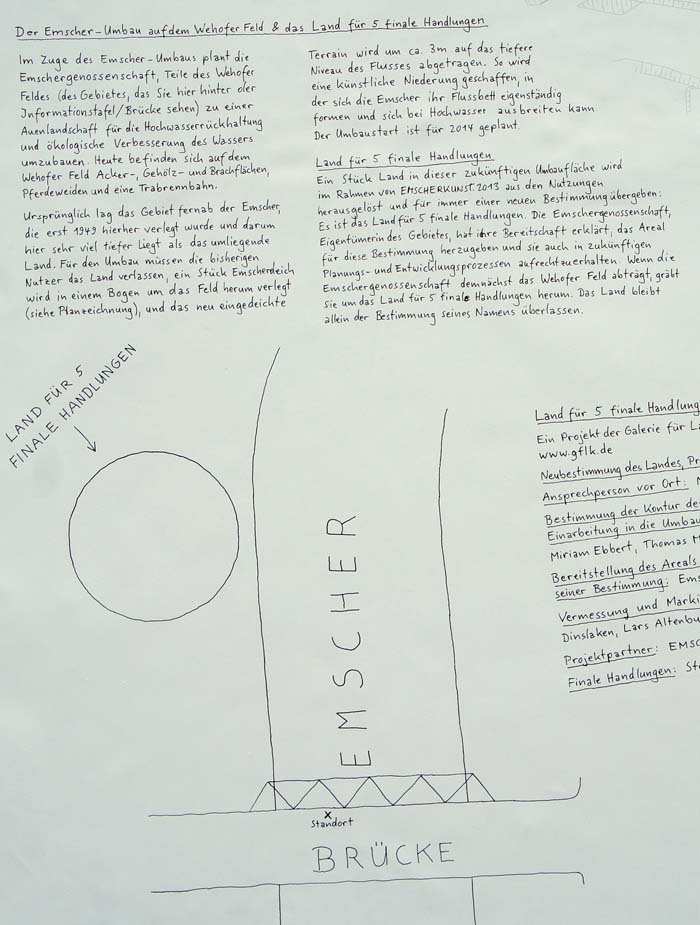 Der Emscher-Umbau auf dem Wehofer Feld & das Land für 5 finale Handlungen
Im Zuge des Emscher-Umbaus plant die
Emschergenossenschaft, Teile des Wehofer
Feldes (des Gebietes, das Sie hier hinter der
Informationstafel/Brücke sehen) zu einer
Auenlandschaft für die Hochwasserrückhaltung
und ökologische Verbesserung des Wassers
umzubauen. Heute befinden sich auf dem
Wehofer Feld Acker-, Gehölz- und Brachflächen,
Pferdeweiden und eine Trabrennbahn.
Ursprünglich lag das Gebiet fernab der Emscher,
die erst 1949 hierher verlegt wurde und darum
hier sehr viel tiefer liegt als das umliegende
Land. Für den Umbau müssen die bisherigen
Nutzer das Land verlassen, ein Stück Emscherdeich
wird in einem Bogen um das Feld herum verlegt
(siehe Planzeichnung), und das neu eingedeichte
Terrain wird um ca. 3m auf das tiefere
Niveau des Flusses abgetragen. So wird
eine künstliche Niederung geschaffen, in
der sich die Emscher ihr Flussbett eigenständig
formen und sich bei Hochwasser ausbreiten kann.
Der Umbaustart ist für 2014 geplant.
Land für 5 finale Handlungen
Ein Stück Land in dieser zukünftigen Umbaufläche wird
im Rahmen von EMSCHERKUNST.2013 aus den Nutzungen
herausgelöst und für immer einer neuen Bestimmung übergeben:
Es ist das Land für 5 finale Handlungen. Die Emschergenossenschaft,
Eigentümerin des Gebietes, hat ihre Bereitschaft erklärt, das Areal
für diese Bestimmung herzugeben und sie auch in zukünftigen
Planungs- und Entwicklungsprozessen aufrechtzuerhalten. Wenn die
Emschergenossenschaft demnächst das Wehofer Feld abträgt, gräbt
sie um das Land für 5 finale Handlungen herum. Das Land bleibt
allein der Bestimmung seines Namens überlassen.
LAND FÜR 5
FINALE HANDLUNGEN
EMSCHER
Standort
BRÜCKE
Land für 5 finale Handlung
Ein Projekt der Galerie für La
www.gflk.de
Neubestimmung des Landes, Pr
Ansprechperson vor Ort:
Bestimmung der Kontur de
Einarbeitung in die Umbau
Miriam Ebbert, Thomas M
Bereitstellung des Areals
seiner Bestimmung: Ems
Vermessung und Marki
Dinslaken, Lars Altenbu
Projektpartner: EMSC
Finale Handlungen: Ste